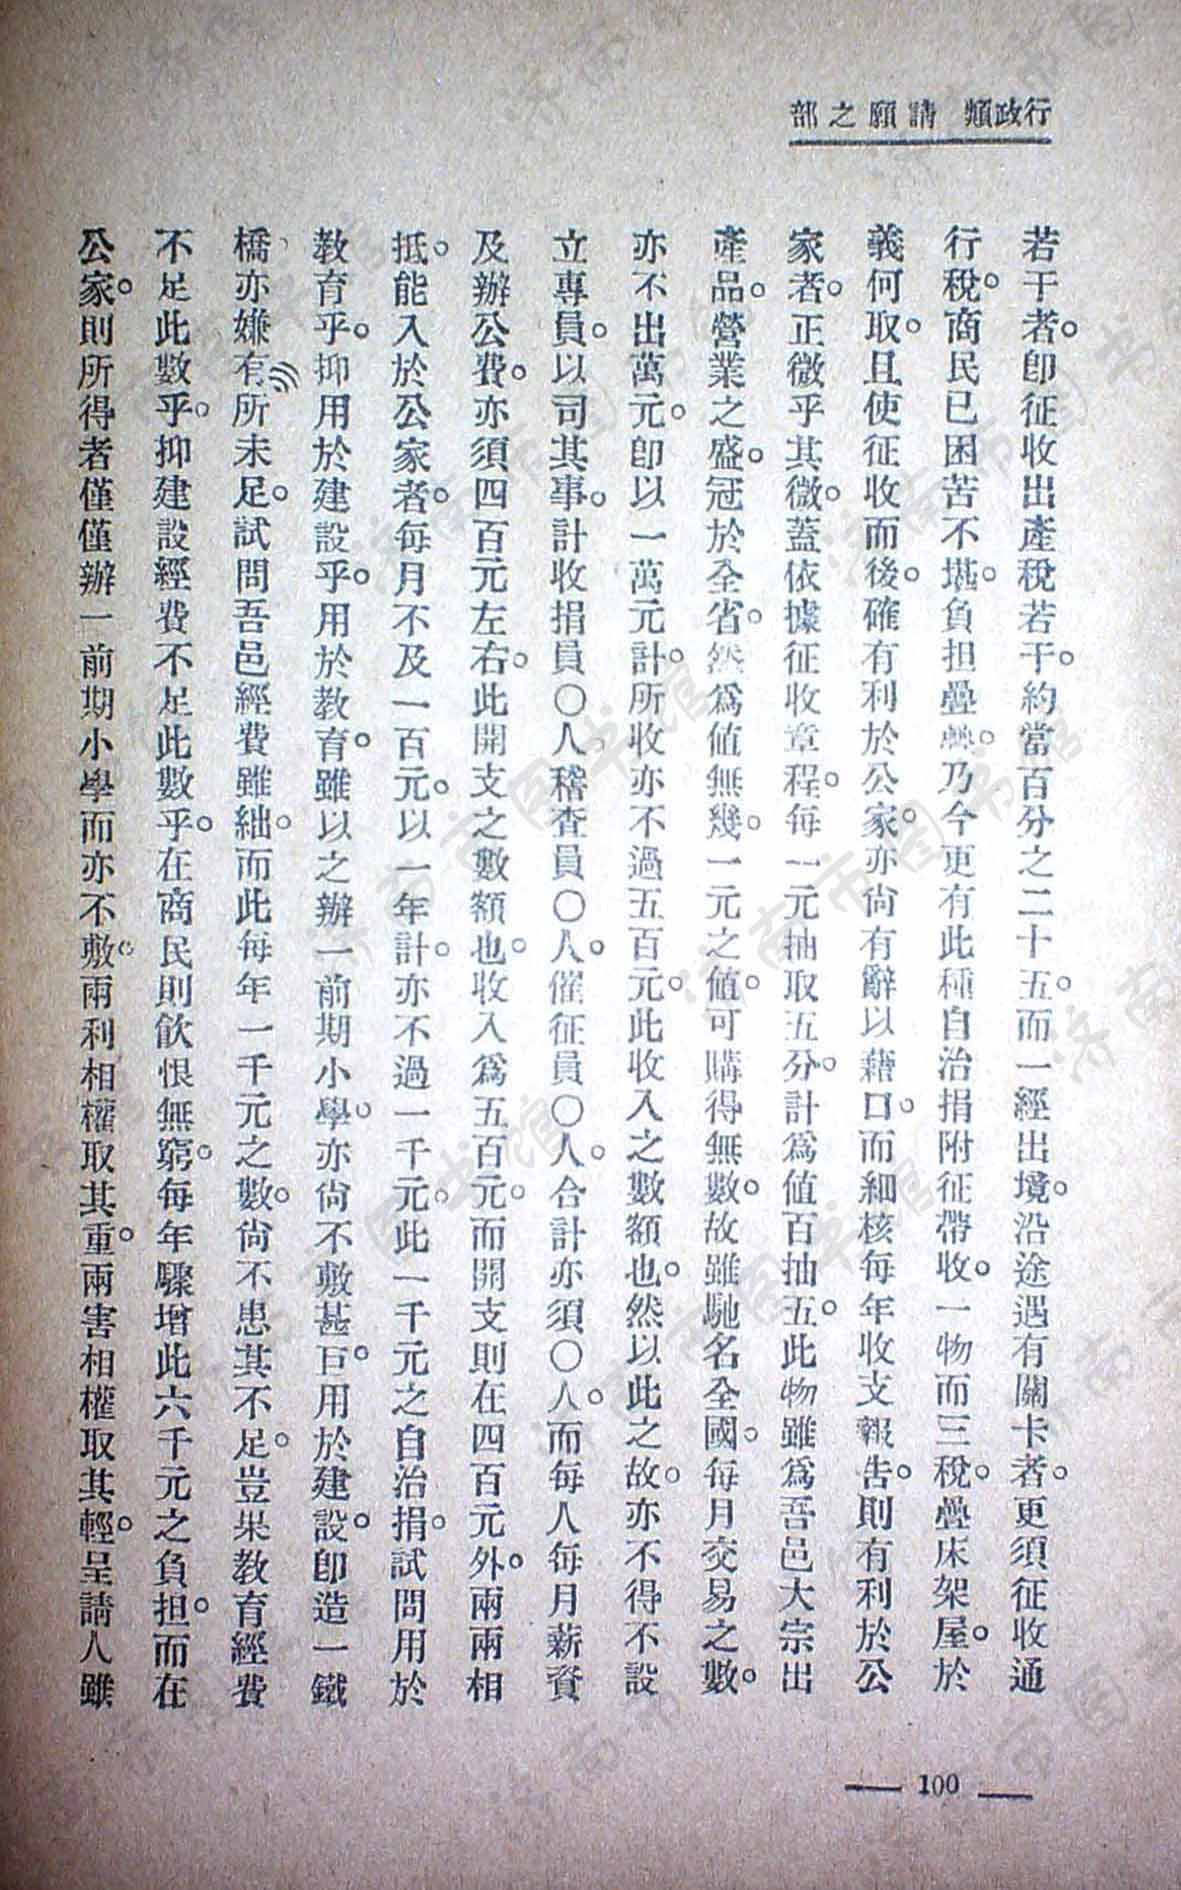 行政類 請願之部
若干者。卽征收出產稅若干。約當百分之二十五。而一經出境。沿途遇有關卡者。更須征收通
行稅。商民已困苦不堪。負担疊興。乃今更有此種自治捐附征帶收。一物而三稅。疊床架屋。於
義何取。且使征收而後。確有利於公家。亦尙有辭以藉口。而細核每年收支報告。則有利於公
家者。正微乎其微。蓋依據征收章程。每一元抽取五分。計爲值百抽五。此物雖爲吾邑大宗出
產品。營業之盛。冠於全省。然爲値無幾。一元之値。可購得無數。故雖馳名全國。每月交易之數。
亦不出萬元。卽以一萬元計。所收亦不過五百元。此收入之數額也。然以此之故。亦不得不設
立專員。以司其事。計收捐員〇人。稽查員〇人。催征員〇人。合計亦須〇人。而每人每月薪資
及辦公費。亦須四百元左右。此開支之數額也。收入爲五百元。而開支則在四百元外。兩兩相
抵。能入於公家者。每月不及一百元。以一年計。亦不過一千元。此一千元之自治捐。試問用於
敎育乎。抑用於建設乎。用於敎育。雖以之辦一前期小學。亦尙不敷甚巨。用於建設。卽造一鐵
橋、亦嫌有所未足。試問吾邑經費雖絀。而此每年一千元之數。尙不患其不足。豈果敎育經費
不足此數乎。抑建設經費不足此數乎。在商民則飮恨無窮。每年驟增此六千元之負担。而在
公家。則所得者僅僅辦一前期小學而亦不敷。兩利相權取其重。兩害相權取其輕。呈請人雖
— 100 —
济南市图书馆